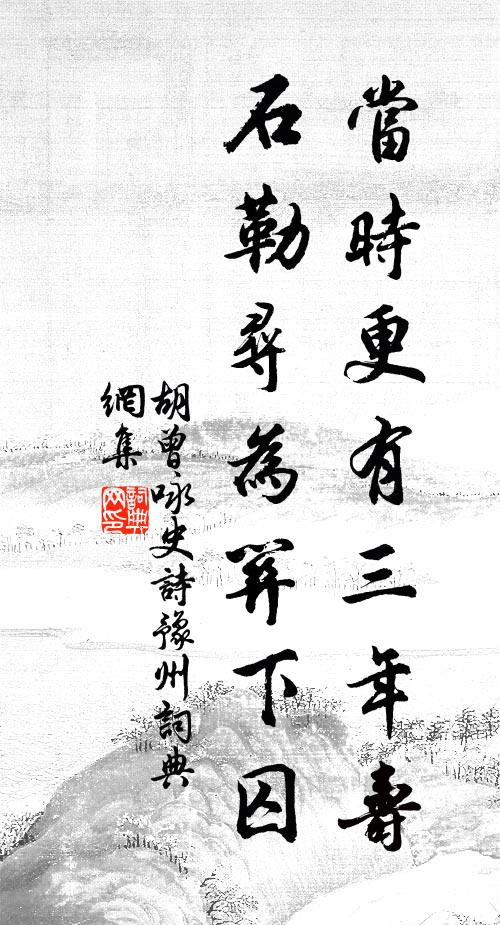 當時更有三年壽
石勒尋為關下囚
胡曾咏史詩豫州詞典
網集
詞典
网印